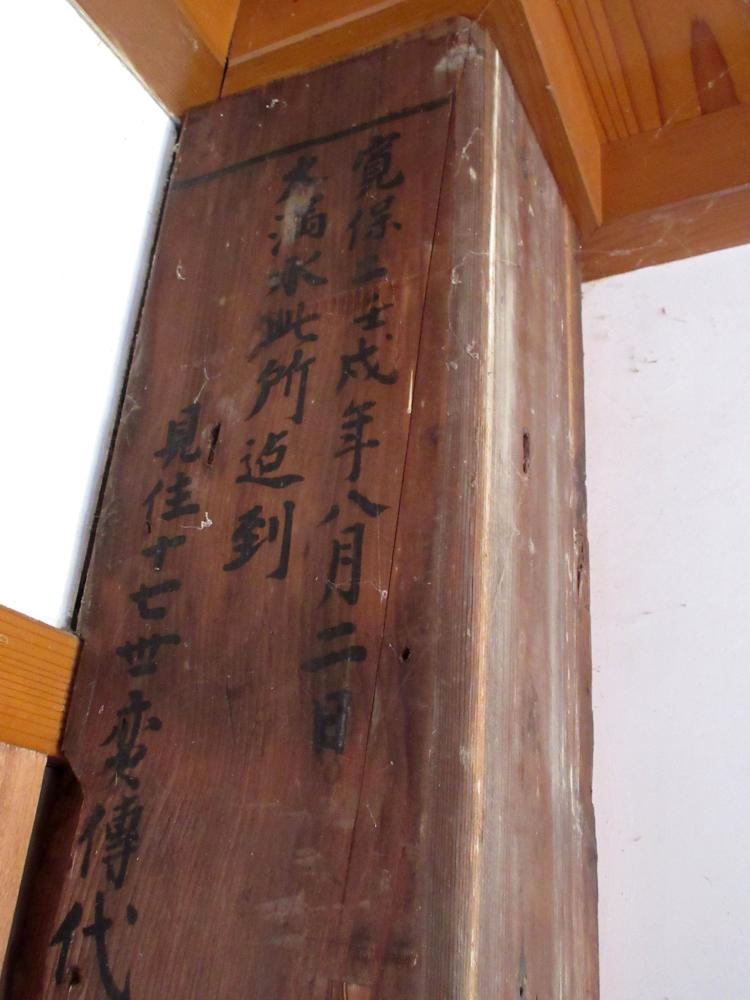 寛保二壬戌年八月二日
大満水此所迠到
見住十七世奕傳代